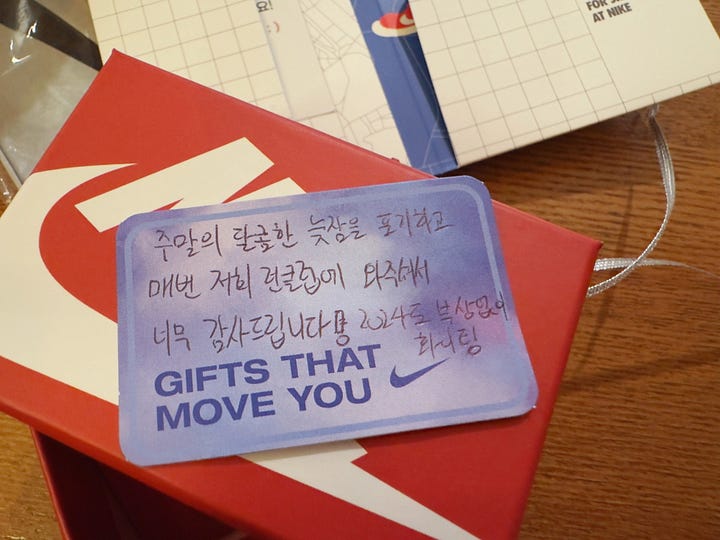 요!
FOR J
AT NIKE
주말의 달콤한 늦잠을 포기하고
매번 저희 런클럽에 와주셔서
너무 감사드립니다 2024도 부상없이
화이팅
GIFTS THAT
MOVE YOU